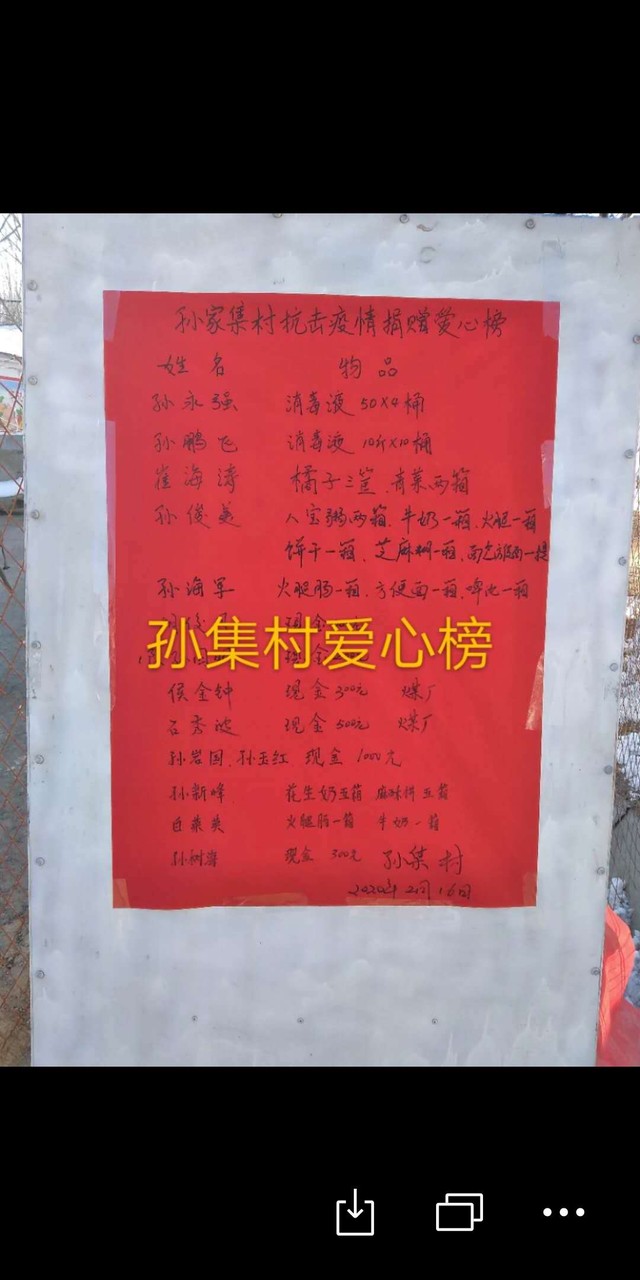 孙家集村抗击疫情捐赠爱心榜
姓名 物品
孙永强 消毒液 50X4桶
孙鹏飞 消毒液 10斤X10桶
崔海涛 橘子三筐、青菜两箱
孙俊美 八宝粥两箱、牛奶一箱、火腿一箱
饼干一箱、芝麻糊一箱、一提
孙海军 火腿肠一箱、方便面一箱、啤酒一箱
现金
孙集村爱心榜
现金
侯金钟 现金300元 煤厂
石秀波 现金500元 煤厂
孙岩国、孙玉红 现金 1000元
孙新峰 花生奶五箱 五箱
火腿肠一箱 牛奶一箱
孙树 现金 300元 孙集村
2020年2月16日